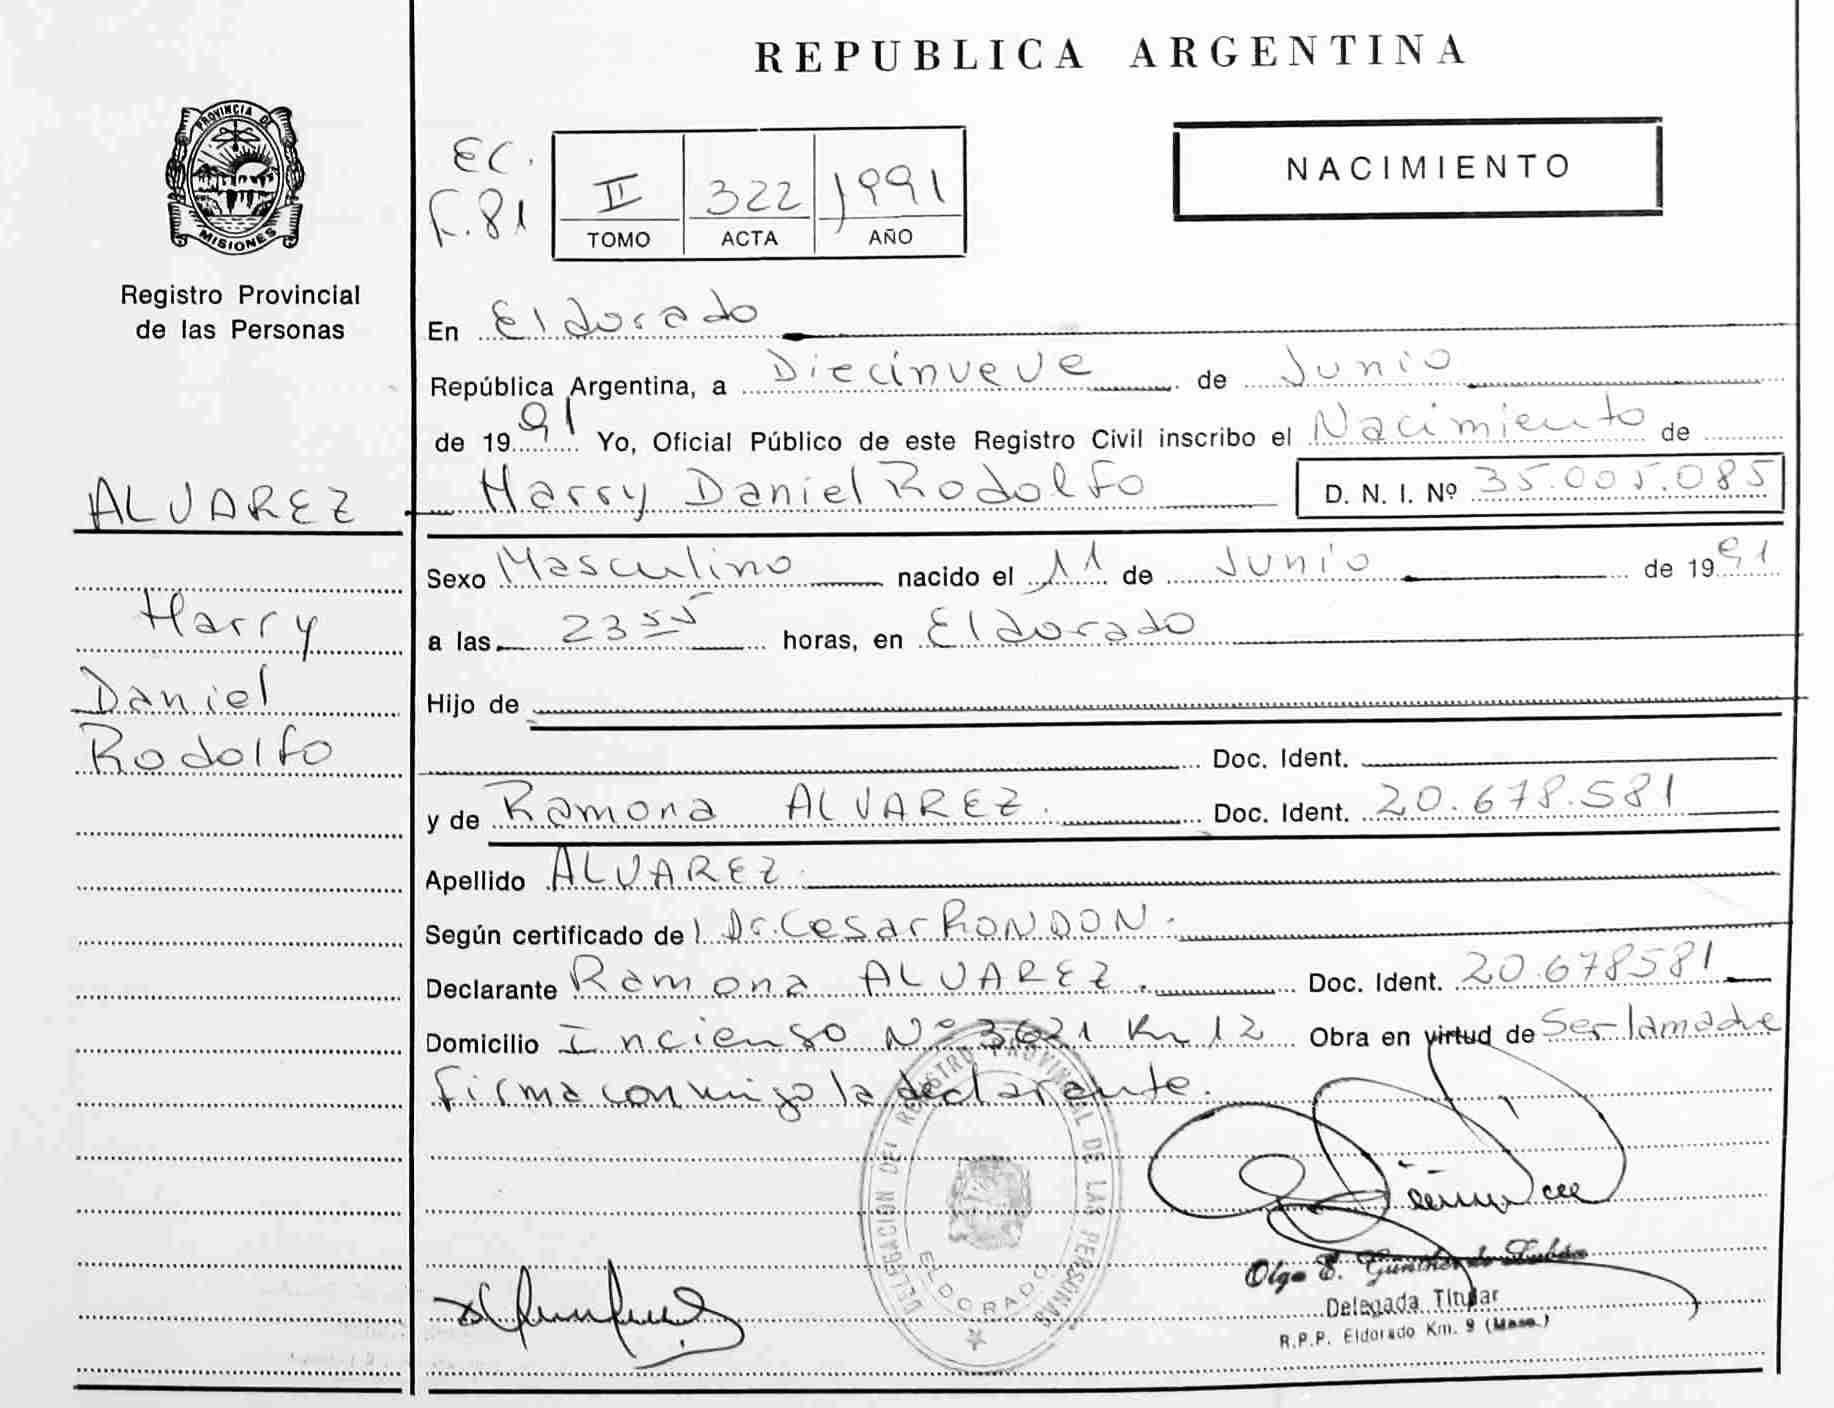 REPUBLICA ARGENTINA
PROVINCIA DE
MISIONES
Registro Provincial
de las Personas
EC.
F.81
II 322 1991
TOMO ACTA AÑO
NACIMIENTO
En Eldorado
República Argentina, a Diecinueve de Junio
de 1991 Yo, Oficial Público de este Registro Civil inscribo el Nacimiento de
ALVAREZ
Harry Daniel Rodolfo D. N. I. Nº 35.005.085
Sexo Masculino nacido el 11 de Junio de 1991
Harry
a las 23 55 horas, en Eldorado
Daniel
Hijo de
Rodolfo
Doc. Ident.
y de Ramona ALVAREZ. Doc. Ident. 20.678.581
Apellido ALVAREZ.
Según certificado del Dr. Cesar RONDON.
Declarante Ramona ALVAREZ. Doc. Ident. 20.678581
Domicilio Incienso Nº 3621 Km 12 Obra en virtud de Ser la madre
firma conmigo la declarante.
DELEGACION DEL REGISTRO PROVINCIAL DE LAS PERSONAS
ELDORADO
Olga E. Günther de
Delegada Titular
R.P.P. Eldorado Km. 9 (Mnes.)